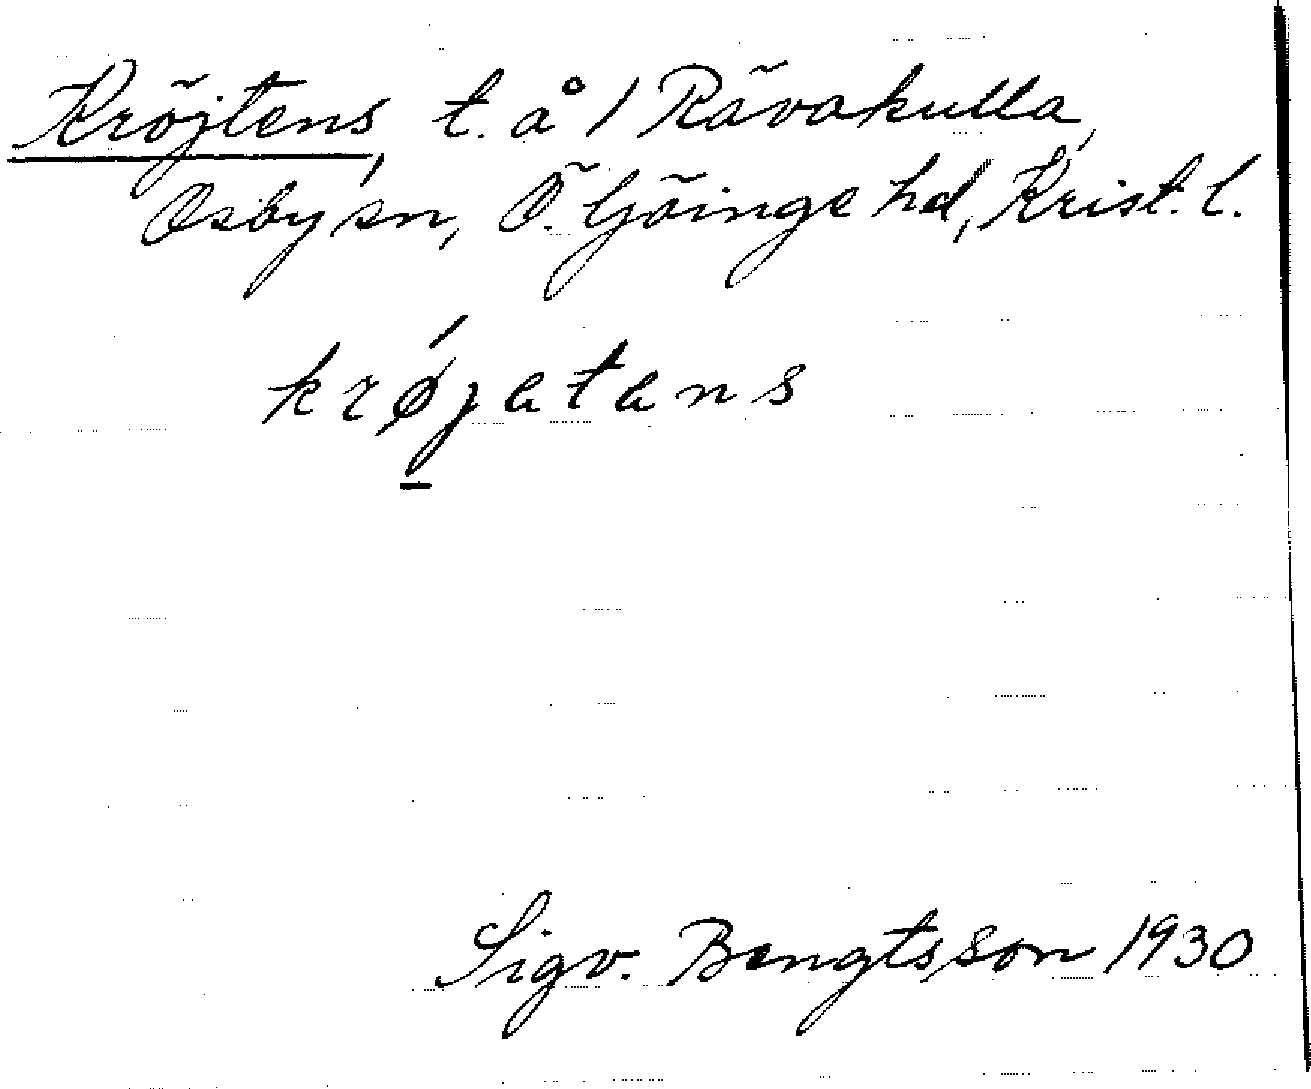 Kröjtens, t. å 1 Rävakulla,
Osby sn, Ö. Göinge hd, Krist. l.
krǿjatans
Sigv. Bengtsson 1930